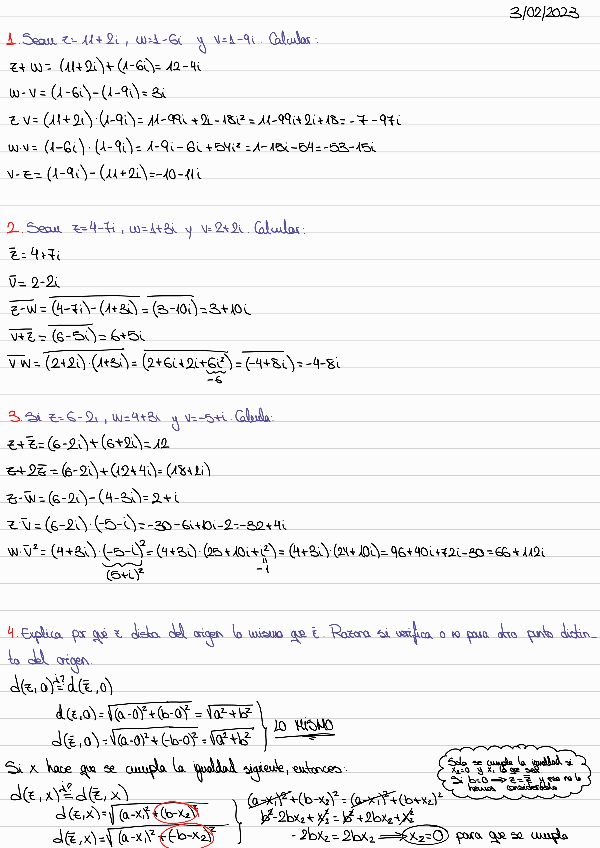 3/02/2023
1. Sean z=11+2i, w=1-6i y v=1-9i. Calcular:
z+w=(11+2i)+(1-6i)=12-4i
w-v=(1-6i)-(1-9i)=3i
z·v=(11+2i)·(1-9i)=11-99i+2i-18i²=11-99i+2i+18=-7-97i
w·v=(1-6i)·(1-9i)=1-9i-6i+54i²=1-15i-54=-53-15i
v-z=(1-9i)-(11+2i)=-10-11i
2. Sean z=4-7i, w=1+3i y v=2+2i. Calcular:
z̅=4+7i
v̅=2-2i
\overline{z-w}=\overline{(4-7i)-(1+3i)}=\overline{(3-10i)}=3+10i
\overline{v+z}=\overline{(6-5i)}=6+5i
\overline{v·w}=\overline{(2+2i)·(1+3i)}=\overline{(2+6i+2i+6i²)}=\overline{(-4+8i)}=-4-8i
-6
3. Si z=6-2i, w=4+3i y v=-5+i. Calcula:
z+z̅=(6-2i)+(6+2i)=12
z+2z̅=(6-2i)+(12+4i)=(18+2i)
z-w̅=(6-2i)-(4-3i)=2+i
z·v̅=(6-2i)·(-5-i)=-30-6i+10i-2=-32+4i
w·v̅²=(4+3i)·(-5-i)²=(4+3i)·(25+10i+i²)=(4+3i)·(24+10i)=96+40i+72i-30=66+112i
(5+i)² -1
4. Explica por qué z dista del origen lo mismo que z̅. Razona si verifica o no para otro punto distin-
to del origen.
d(z,0)=¿?d(z̅,0)
d(z,0)=√((a-0)²+(b-0)²)=√(a²+b²)
d(z̅,0)=√((a-0)²+(-b-0)²)=√(a²+b²)
LO MISMO
Si x hace que se cumpla la igualdad siguiente, entonces:
Solo se cumple la igualdad si
x₂=0 y x₁ lo que sea
Si b=0 ⟹ z=z̅ y eso no lo
hemos considerado
d(z,x)=¿?d(z̅,x)
d(z,x)=√((a-x₁)²+(b-x₂)²)
d(z̅,x)=√((a-x₁)²+(-b-x₂)²)
(a-x₁)²+(b-x₂)²=(a-x₁)²+(b+x₂)²
b²-2bx₂+x₂²=b²+2bx₂+x₂²
-2bx₂=2bx₂ ⟹ x₂=0 para que se cumpla